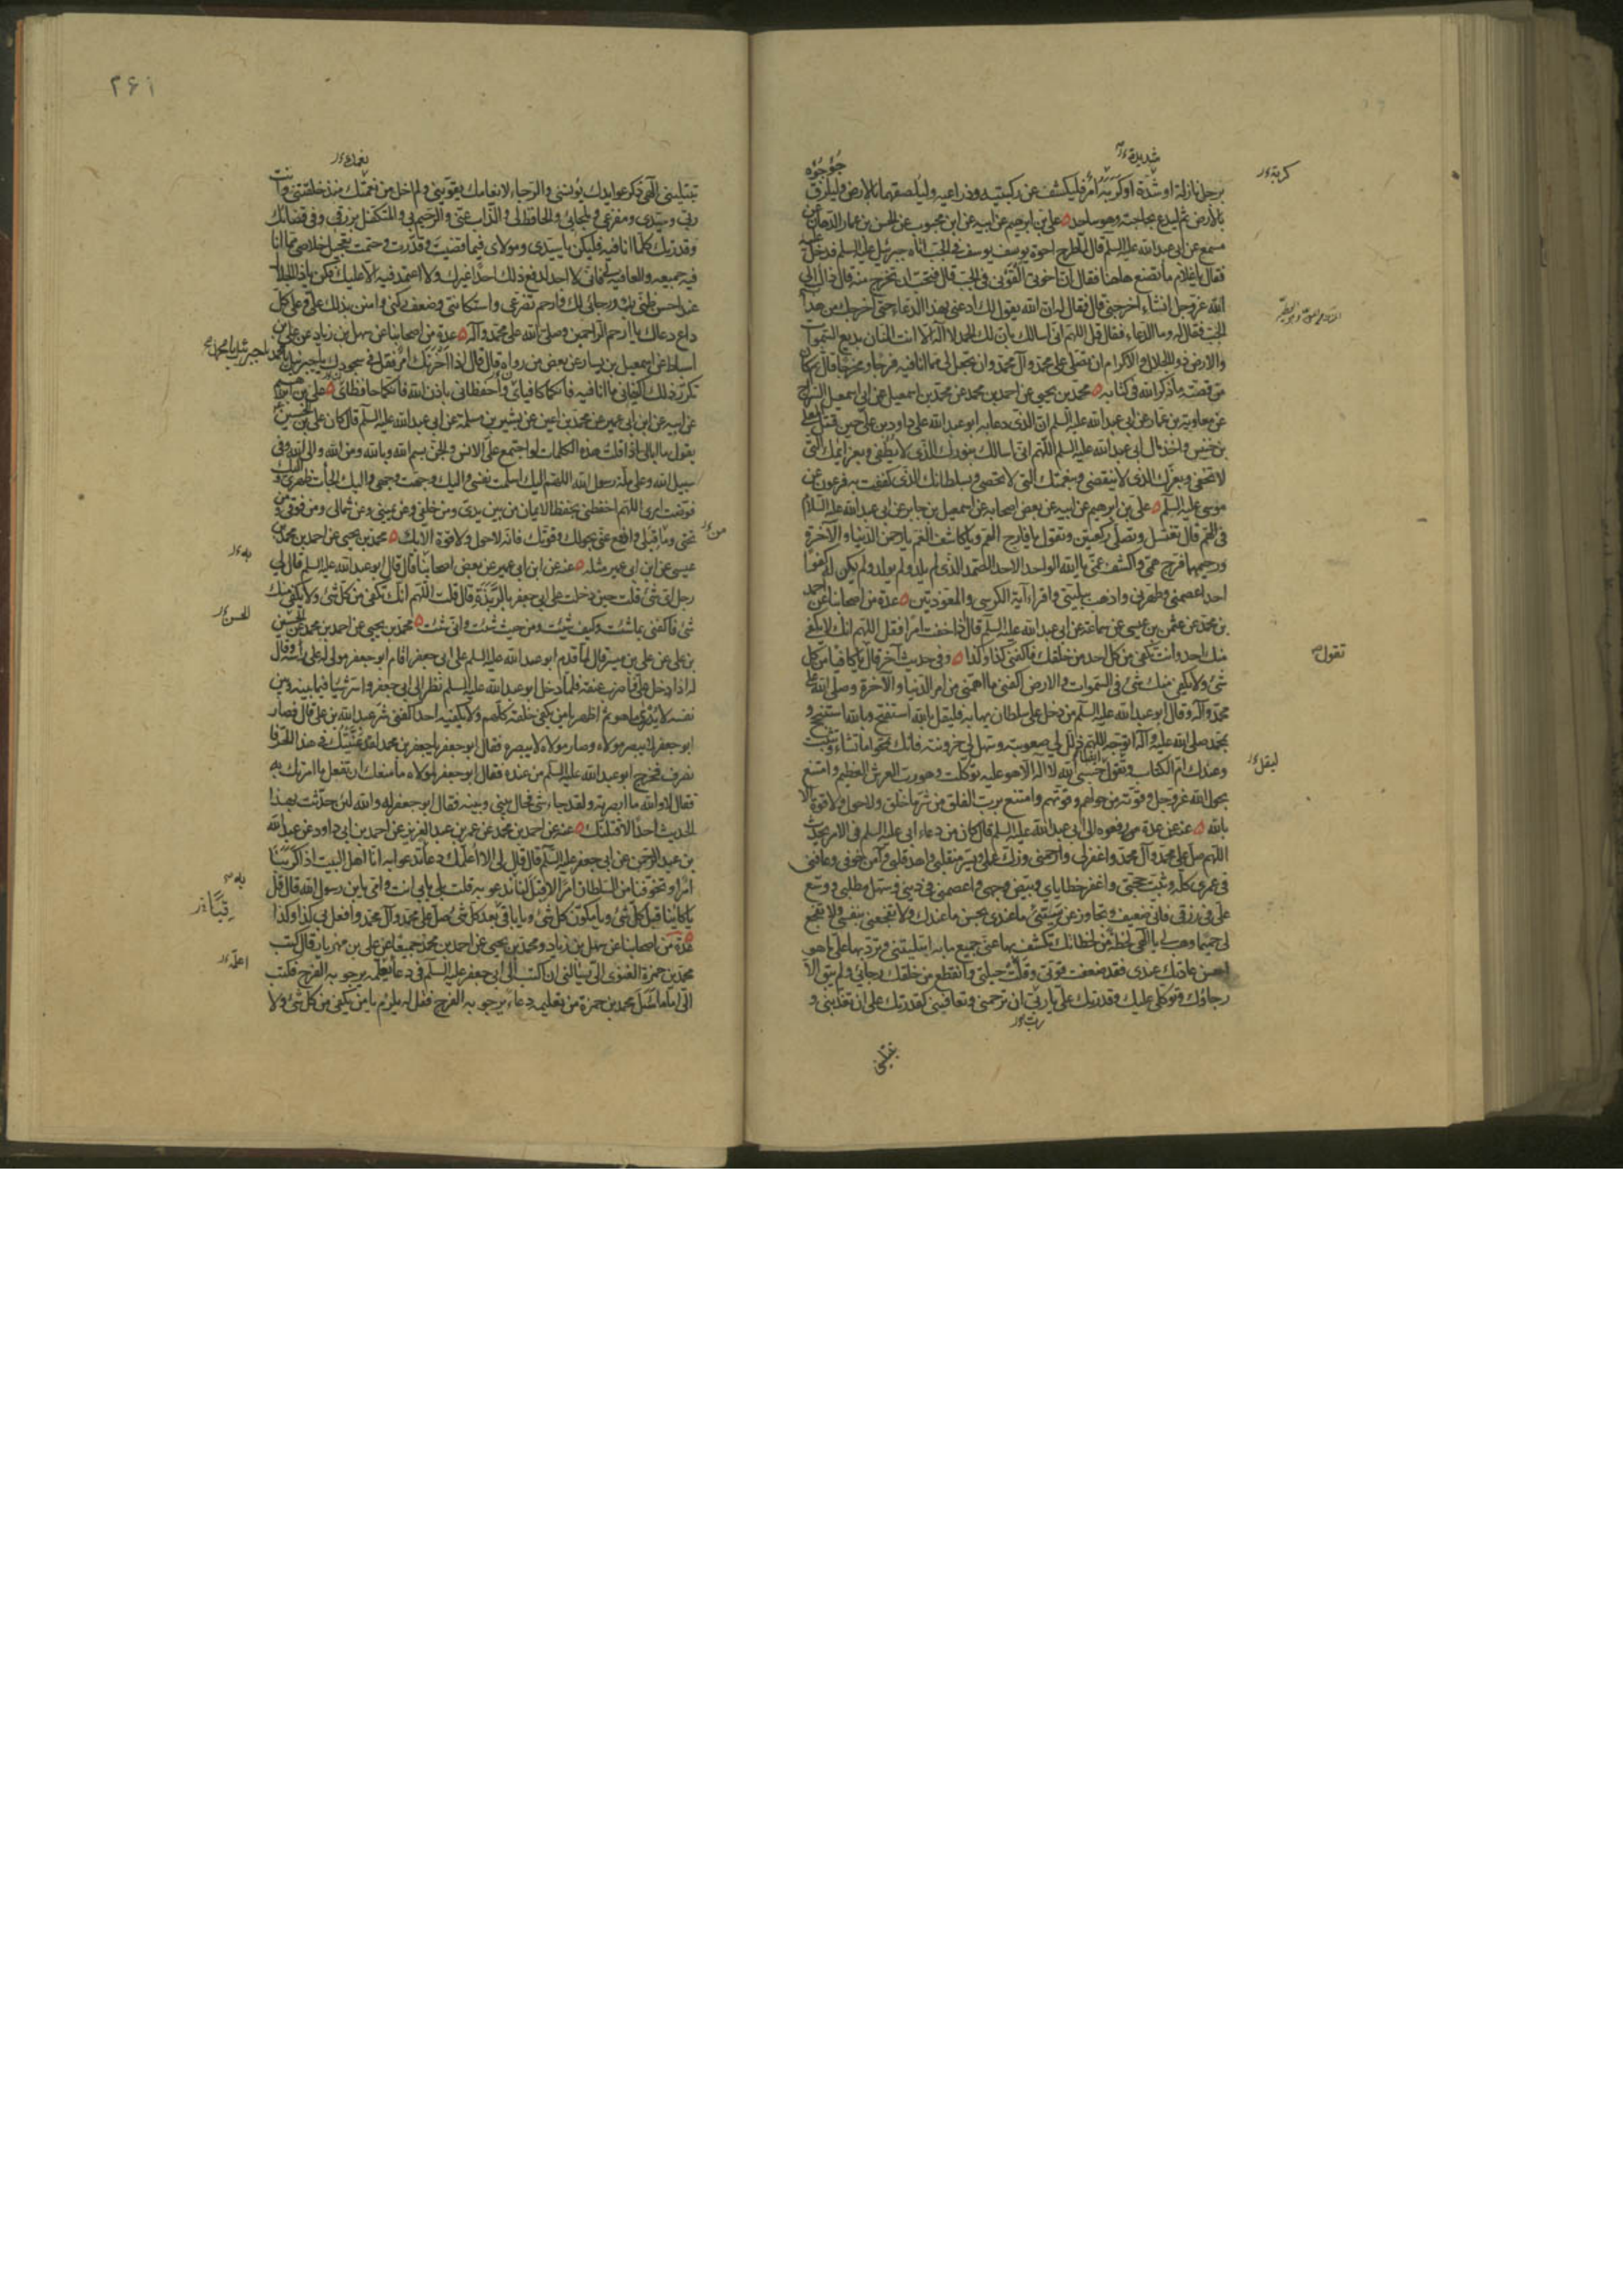 برجل نازلة او شدة او كربة امر فليكشف عن ركبتيه وذراعيه وليلصقهما بالارض وليلزق
بالارض ثم ليدع بحاجته وهو ساجد علي بن ابرهيم عن ابيه عن ابن محبوب عن الحسن بن عمار الدهان عن
مسمع عن ابي عبد الله عليه السلم قال لما طرح اخوة يوسف يوسف في الجب اتاه جبرئيل عليه السلم فدخل عليه
فقال يا غلام ما تصنع هاهنا فقال ان اخوتي القوني في الجب قال فتحب ان تخرج منه قال ذاك الى
الله عز وجل ان شاء اخرجني قال فقال له ان الله يقول لك ادعني بهذا الدعاء حتى اخرجك من هذا
الجب فقال له وما الدعاء فقال قل اللهم اني اسالك بان لك الحمد لا اله الا انت المنان بديع السموات
والارض ذو الجلال والاكرام ان تصلي على محمد وآل محمد وان تجعل لي مما انا فيه فرجا ومخرجا قال ثم كان
من قصته ما ذكر الله في كتابه محمد بن يحيى عن احمد بن محمد عن محمد بن اسمعيل عن ابي اسمعيل السراج
عن معاوية بن عمار عن ابي عبد الله عليه السلم ان الذي دعا به ابو عبد الله على داود بن علي حين قتل المعلى
بن خنيس واخذ مال ابي عبد الله عليه السلم اللهم اني اسالك بنورك الذي لا يطفى وبعزائمك التي
لا تخفى وبعزك الذي لا ينقضي وبنعمتك التي لا تحصى وبسلطانك الذي كففت به فرعون عن
موسى عليه السلم علي بن ابرهيم عن ابيه عن بعض اصحابه عن اسمعيل بن جابر عن ابي عبد الله عليه السلام
في الهم قال تغتسل وتصلي ركعتين وتقول يا فارج الهم ويا كاشف الغم يا رحمن الدنيا والآخرة
ورحيمهما فرج همي واكشف غمي يا الله الواحد الاحد الصمد الذي لم يلد ولم يولد ولم يكن له كفوا
احد اعصمني وطهرني واذهب ببليتي واقراء آية الكرسي والمعوذتين عدة من اصحابنا عن احمد
بن محمد عن عثمن بن عيسى عن سماعة عن ابي عبد الله عليه السلم قال اذا خفت امرا فقل اللهم انك لا يكفي
منك احد وانت تكفي من كل احد من خلقك فاكفني كذا وكذا وفي حديث آخر قال يا كافيا من كل
شئ ولا يكفي منك شئ في السموات والارض اكفني ما اهمني من امر الدنيا والآخرة وصلى الله على
محمد وآله وقال ابو عبد الله عليه السلم من دخل على سلطان يهابه فليقل بالله استفتح وبالله استنجح و
بمحمد صلى الله عليه وآله اتوجه اللهم ذلل لي صعوبته وسهل لي حزونته فانك تمحو ما تشاء وتثبت
وعندك ام الكتاب وتقول ايضا حسبي الله لا اله الا هو عليه توكلت وهو رب العرش العظيم وامتنع
بحول الله عز وجل وقوته من حولهم وقوتهم وامتنع برب الفلق من شر ما خلق ولا حول ولا قوة الا
بالله عنه عن عدة رفعوه الى ابي عبد الله عليه السلم قال كان من دعاء ابي عليه السلم في الامر يحدث
اللهم صل على محمد وآل محمد واغفر لي وارحمني وزك عملي ويسر منقلبي واهد قلبي وآمن خوفي وعافني
في عمري كله وثبت حجتي واغفر خطاياي وبيض وجهي واعصمني في ديني وسهل مطلبي ووسع
علي في رزقي فاني ضعيف وتجاوز عن سيئي ما عندي بحسن ما عندك ولا تفجعني بنفسي ولا تفجع
لي حميما وهب لي يا الهي لحظة من لحظاتك تكشف بها عني جميع ما به ابتليتني وترد بها علي ما هو
احسن عاداتك عندي فقد ضعفت قوتي وقلت حيلتي وانقطع من خلقك رجائي ولم يبق الا
رجاؤك وتوكلي عليك وقدرتك علي يا رب ان ترحمني وتعافيني كقدرتك علي ان تعذبني و
شديدة
جؤجؤه
كربة
تقول
ليقل
رب
۲۶۱
تبتليني الهي ذكر عوايدك يؤنسني والرجاء لانعامك يقويني ولم اخل من نعمتك منذ خلقتني وانت
ربي وسيدي ومفزعي وملجائي والحافظ لي والذاب عني والرحيم بي والمتكفل برزقي وفي قضائك
وقدرتك كلما انا فيه فليكن يا سيدي ومولاي فيما قضيت وقدرت وحتمت تعجيل خلاصي مما انا
فيه جميعه والعافية لي فاني لا اجد لدفع ذلك احدا غيرك ولا اعتمد فيه الا عليك فكن يا ذا الجلال
عند احسن ظني بك ورجائي لك وارحم تضرعي واستكانتي وضعف ركني وامنن بذلك علي وعلى كل
داع دعاك يا ارحم الراحمين وصلى الله على محمد وآله عدة من اصحابنا عن سهل بن زياد عن علي بن
اسباط عن اسمعيل بن يسار عن بعض من رواه قال قال اذا احزنك امر فقل في سجودك يا جبرئيل يا محمد يا جبرئيل يا محمد
تكرر ذلك اكفياني ما انا فيه فانكما كافياي واحفظاني باذن الله فانكما حافظاي علي بن ابرهيم
عن ابيه عن ابن ابي عمير عن محمد بن اعين عن بشير بن مسلمة عن ابي عبد الله عليه السلم قال كان علي بن الحسين
يقول ما ابالي اذا قلت هذه الكلمات لو اجتمع علي الانس والجن بسم الله وبالله ومن الله والى الله وفي
سبيل الله وعلى ملة رسول الله اللهم اليك اسلمت نفسي واليك وجهت وجهي واليك الجأت ظهري واليك
فوضت امري اللهم احفظني بحفظ الايمان من بين يدي ومن خلفي وعن يميني وعن شمالي ومن فوقي ومن
تحتي وما قبلي وادفع عني بحولك وقوتك فانه لا حول ولا قوة الا بك محمد بن يحيى عن احمد بن محمد بن
عيسى عن ابن ابي عمير مثله عنه عن ابن ابي عمير عن بعض اصحابنا قال قال ابو عبد الله عليه السلم قال لي
رجل اي شئ قلت حين دخلت على ابي جعفر بالربذة قال قلت اللهم انك تكفي من كل شئ ولا يكفي منك
شئ فاكفني بما شئت وكيف شئت ومن حيث شئت وانى شئت محمد بن يحيى عن احمد بن محمد عن الحسين
بن علي عن علي بن ميسر قال لما قدم ابو عبد الله عليه السلم على ابي جعفر اقام ابو جعفر مولى له على رأسه وقال
له اذا دخل علي فاضرب عنقه فلما دخل ابو عبد الله عليه السلم نظر الى ابي جعفر واسر شيئا فيما بينه وبين
نفسه لا يدرى ما هو ثم اظهر يا من يكفي خلقه كلهم ولا يكفيه احد اكفني شر عبد الله بن علي قال فصار
ابو جعفر لا يبصر مولاه وصار مولاه لا يبصره فقال ابو جعفر يا جعفر بن محمد لقد عنيتك في هذا الحر فا
نصرف فخرج ابو عبد الله عليه السلم من عنده فقال ابو جعفر لمولاه ما منعك ان تفعل ما امرتك به
فقال لا والله ما ابصرته ولقد جاء شئ فحال بيني وبينه فقال ابو جعفر له والله لئن حدثت بهذا
الحديث احدا لاقتلنك عنه عن احمد بن محمد عن عمر بن عبد العزيز عن احمد بن ابي داود عن عبد الله
بن عبد الرحمن عن ابي جعفر عليه السلم قال قال لي الا اعلمك دعاء تدعو به انا اهل البيت اذا كربنا
امر او تخوفنا من السلطان امرا لا قبل لنا به ندعو به قلت بلى بابي انت وامي يا بن رسول الله قال قل
يا كائنا قبل كل شئ ويا مكون كل شئ ويا باقي بعد كل شئ صل على محمد وآل محمد وافعل بي كذا وكذا
عدة من اصحابنا عن سهل بن زياد ومحمد بن يحيى عن احمد بن محمد جميعا عن علي بن مهزيار قال كتب
محمد بن حمزة الغنوي الي يسالني ان اكتب الى ابي جعفر عليه السلم في دعاء يعلمه يرجو به الفرج فكتب
الي اما ما سئل محمد بن حمزة من تعليمه دعاء يرجو به الفرج فقل له يلزم يا من يكفي من كل شئ ولا
من
به
الحسن
به
اعلمه